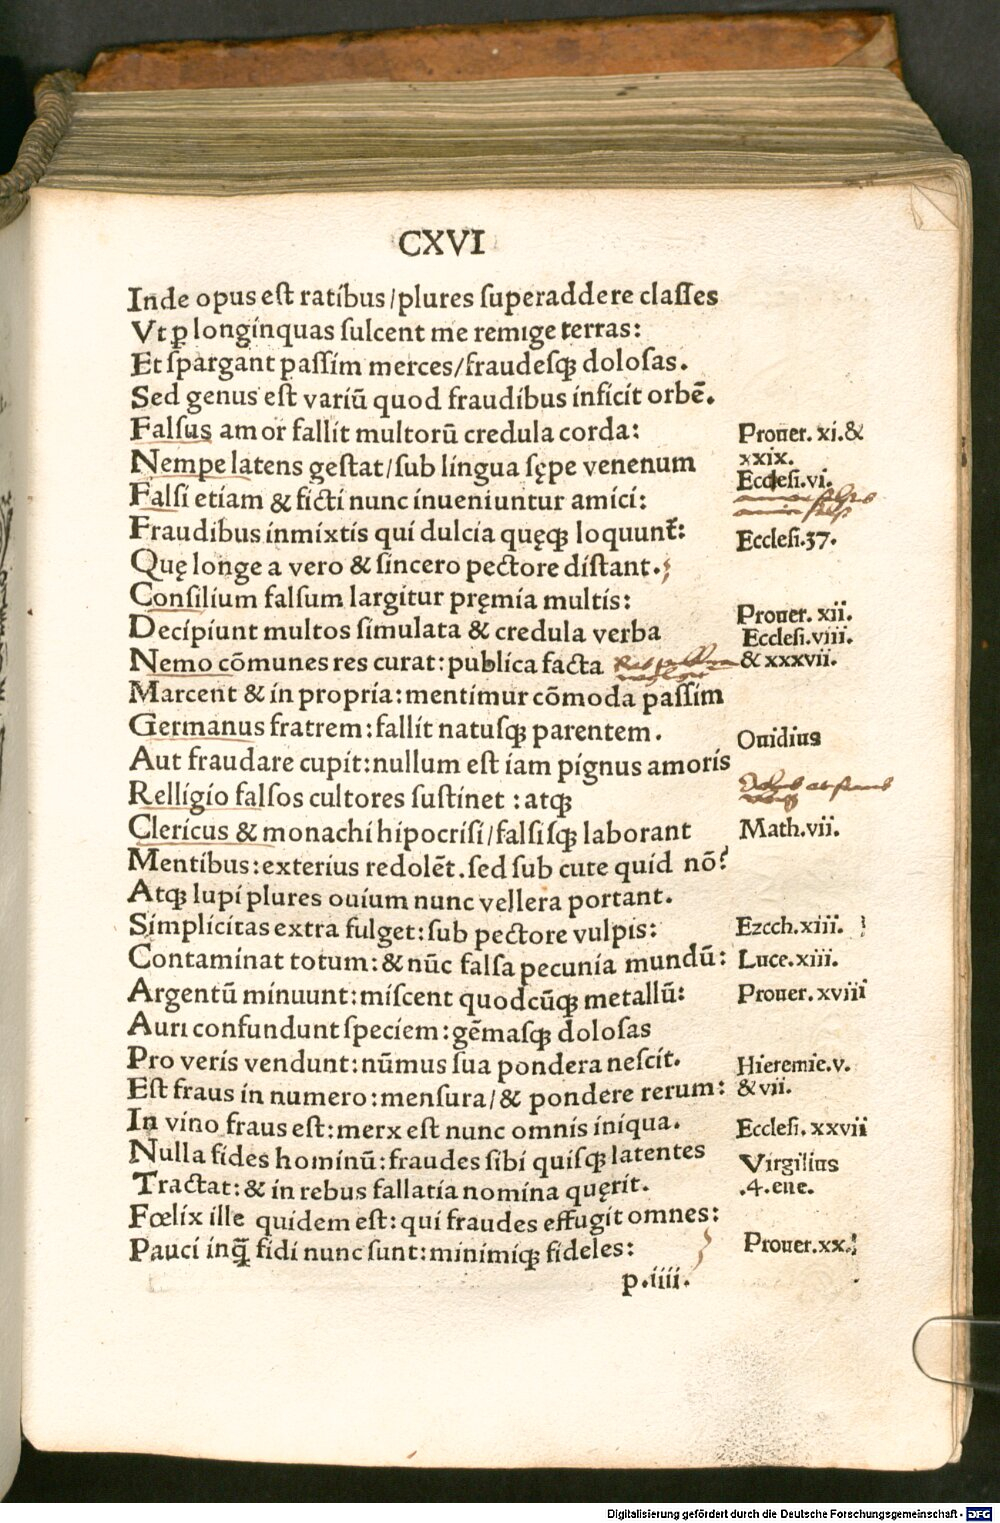 CXVI
Inde opus est ratibus/plures superaddere classes
Vt ꝑ longinquas sulcent me remige terras:
Et spargant passim merces/fraudesqꝫ dolosas.
Sed genus est variū quod fraudibus inficit orbē.
Falsus amor fallit multorū credula corda:
Nempe latens gestat/sub lingua sępe venenum
Falsi etiam & ficti nunc inueniuntur amici:
Fraudibus inmixtis qui dulcia quęqꝫ loquunt̃:
Quę longe a vero & sincero pectore distant.
Consilium falsum largitur pręmia multis:
Decipiunt multos simulata & credula verba
Nemo cōmunes res curat: publica facta
Marcent & in propria: mentimur cōmoda passim
Germanus fratrem: fallit natusqꝫ parentem.
Aut fraudare cupit: nullum est iam pignus amoris
Relligio falsos cultores sustinet: atqꝫ
Clericus & monachi hipocrisi/falsisqꝫ laborant
Mentibus: exterius redolēt. sed sub cute quid nō?
Atqꝫ lupi plures ouium nunc vellera portant.
Simplicitas extra fulget: sub pectore vulpis:
Contaminat totum: & nūc falsa pecunia mundū:
Argentū minuunt: miscent quodcūqꝫ metallū:
Auri confundunt speciem: gēmasqꝫ dolosas
Pro veris vendunt: nūmus sua pondera nescit.
Est fraus in numero: mensura/& pondere rerum:
In vino fraus est: merx est nunc omnis iniqua.
Nulla fides hominū: fraudes sibi quisqꝫ latentes
Tractat: & in rebus fallatia nomina quęrit.
Fœlix ille quidem est: qui fraudes effugit omnes:
Pauci inꝗ̃ fidi nunc sunt: minimiqꝫ fideles:
p.iiii.
Prouer. xi. &
xxix.
Ecclesi. vi.
Ecclesi. 37.
Prouer. xii.
Ecclesi. viii.
& xxxvii.
Ouidius
Math. vii.
Ezech. xiii.
Luce. xiii.
Prouer. xviii
Hieremie. v.
& vii.
Ecclesi. xxvii
Virgilius
.4. ene.
Prouer. xx.
Digitalisierung gefördert durch die Deutsche Forschungsgemeinschaft - DFG